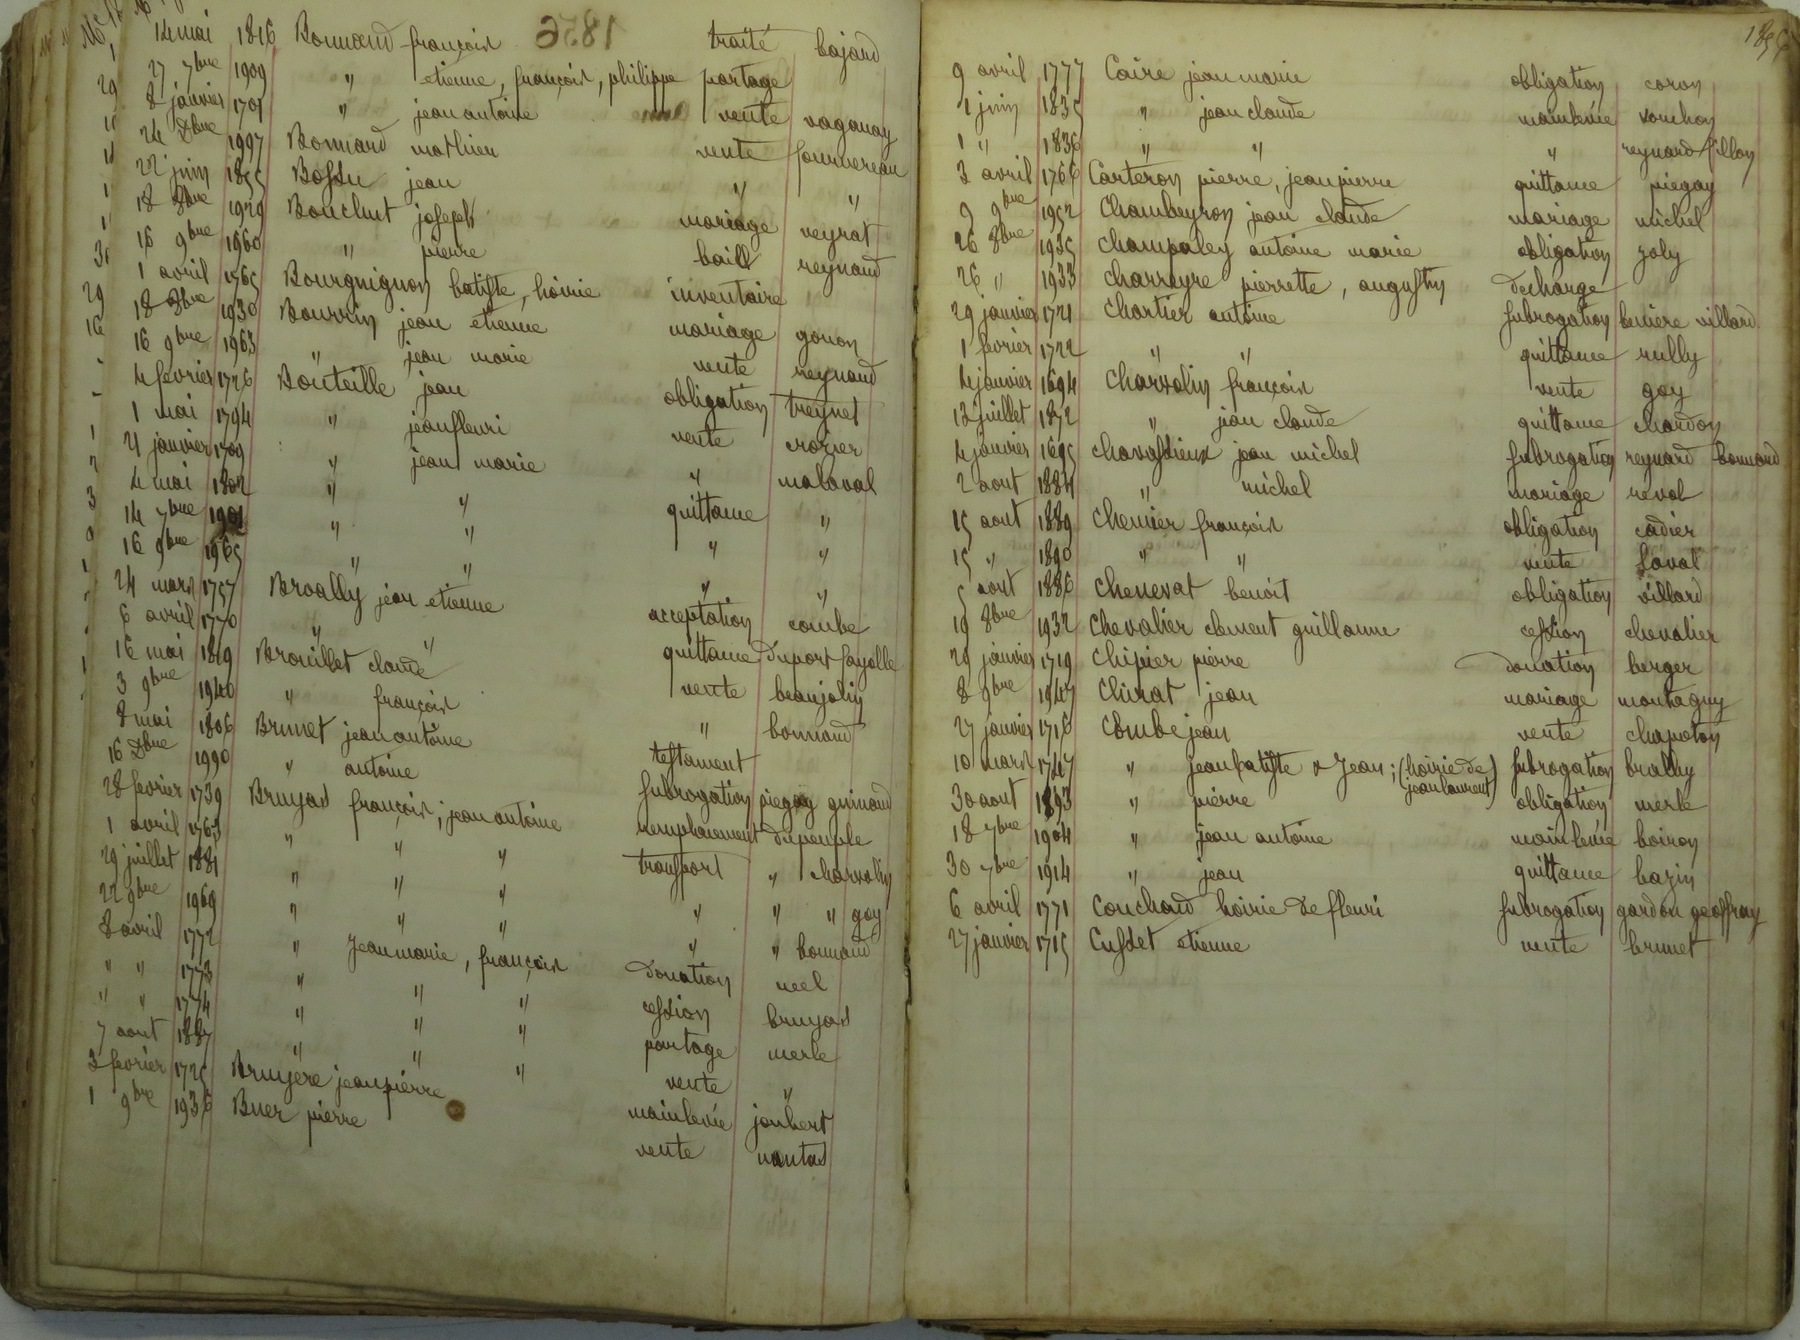 14 mai 1816 Bonnand françois traité bajard
27 7bre 1909 " etienne, françois, philippe partage
8 janvier 1701 " jean antoine vente vaganay
24 Xbre 1997 Bonnard mathieu vente fournereau
22 juin 1855 Bossu jean " "
18 8bre 1929 Bouchut joseph mariage veyrat
16 9bre 1960 " pierre baill reynaud
1 avril 1765 Bourguignon batiste, hoirie inventaire
18 8bre 1930 Bourrin jean etienne mariage gonon
16 9bre 1963 " jean marie vente reynaud
4 fevrier 1726 Bouteille jean obligation treynet
1 mai 1794 " jean fleuri vente crozier
21 janvier 1709 " jean marie " malaval
4 mai 1802 " " quittance "
14 7bre 1901 " " " "
16 9bre 1965 " " " "
24 mars 1757 Broally jean etienne acceptation combe
6 avril 1770 " " quittance duport fayolle
16 mai 1819 Brouillet claude vente beaujolin
3 9bre 1940 " françois " bonnand
8 mai 1806 Brunet jean antoine testament
16 Xbre 1990 " antoine subrogation piegay guinand
28 fevrier 1739 Bruyas françois; jean antoine remplacement dupeuple
1 avril 1763 " " " transport " charvolin
29 juillet 1881 " " " " " " goy
22 9bre 1969 " " " " " bonnand
8 avril 1772 " Jean marie, françois donation neel
" " 1773 " " " cession bruyas
" " 1774 " " " partage merle
7 aout 1887 " " " vente "
3 fevrier 1725 Bruyere jean pierre mainlevée joubert
1 9bre 1936 Buer pierre vente nantas
9 avril 1777 Caire jean marie obligation coron
1 juin 1835 " jean claude mainlevée souchon
1 " 1836 " " " reynard fillon
3 avril 1766 Carteron pierre, jean pierre quittance piegay
9 9bre 1952 Chambeyron jean claude mariage michel
26 8bre 1935 Champaley antoine marie obligation joly
26 " 1933 Charreyre pierrette, augustin decharge
29 janvier 1721 Chartier antoine subrogation beniere villard
1 fevrier 1722 " " quittance rully
4 janvier 1694 Charvolin françois vente goy
12 juillet 1872 " jean claude quittance chardon
4 janvier 1695 Chavassieux jean michel subrogation reynard bonnard
2 aout 1884 " michel mariage reval
15 aout 1889 Chemier françois obligation cadier
15 " 1890 " " vente laval
5 aout 1886 Chenevat benoit obligation villard
19 8bre 1932 Chevalier clement guillaume cession chevalier
29 janvier 1719 Chipier pierre donation berger
8 9bre 1947 Chirat jean mariage montagny
27 janvier 1716 Combe jean vente chapoton
10 mars 1747 " jean batiste & Jean; (hoirie de jean laurent) subrogation brally
30 aout 1893 " pierre obligation merle
18 7bre 1904 " jean antoine mainlevée boiron
30 7bre 1914 " jean quittance bazin
6 avril 1771 Couchoud hoirie de fleuri subrogation gardon geoffray
27 janvier 1715 Cusset etienne vente brunet